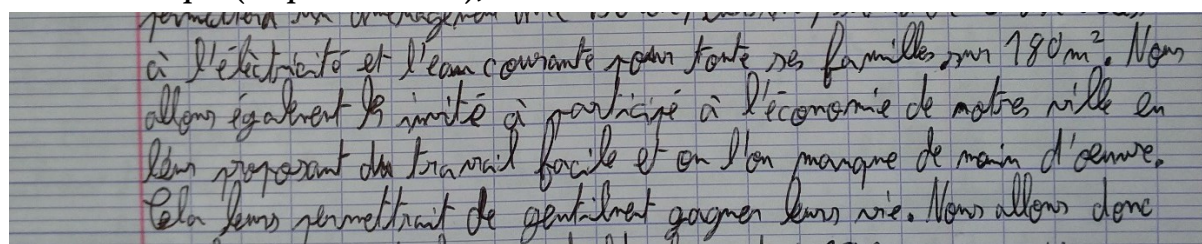 permettera un aménagement
à l'éléctricité et l'eau courante pour toute ses familles sur 180m². Nous
allons également les invité à participé à l'économie de notre ville en
leur proposant du travail facile et ou l'on manque de main d'oeuvre.
Cela leurs permettrait de gentilment gagner leurs vie. Nous allons donc